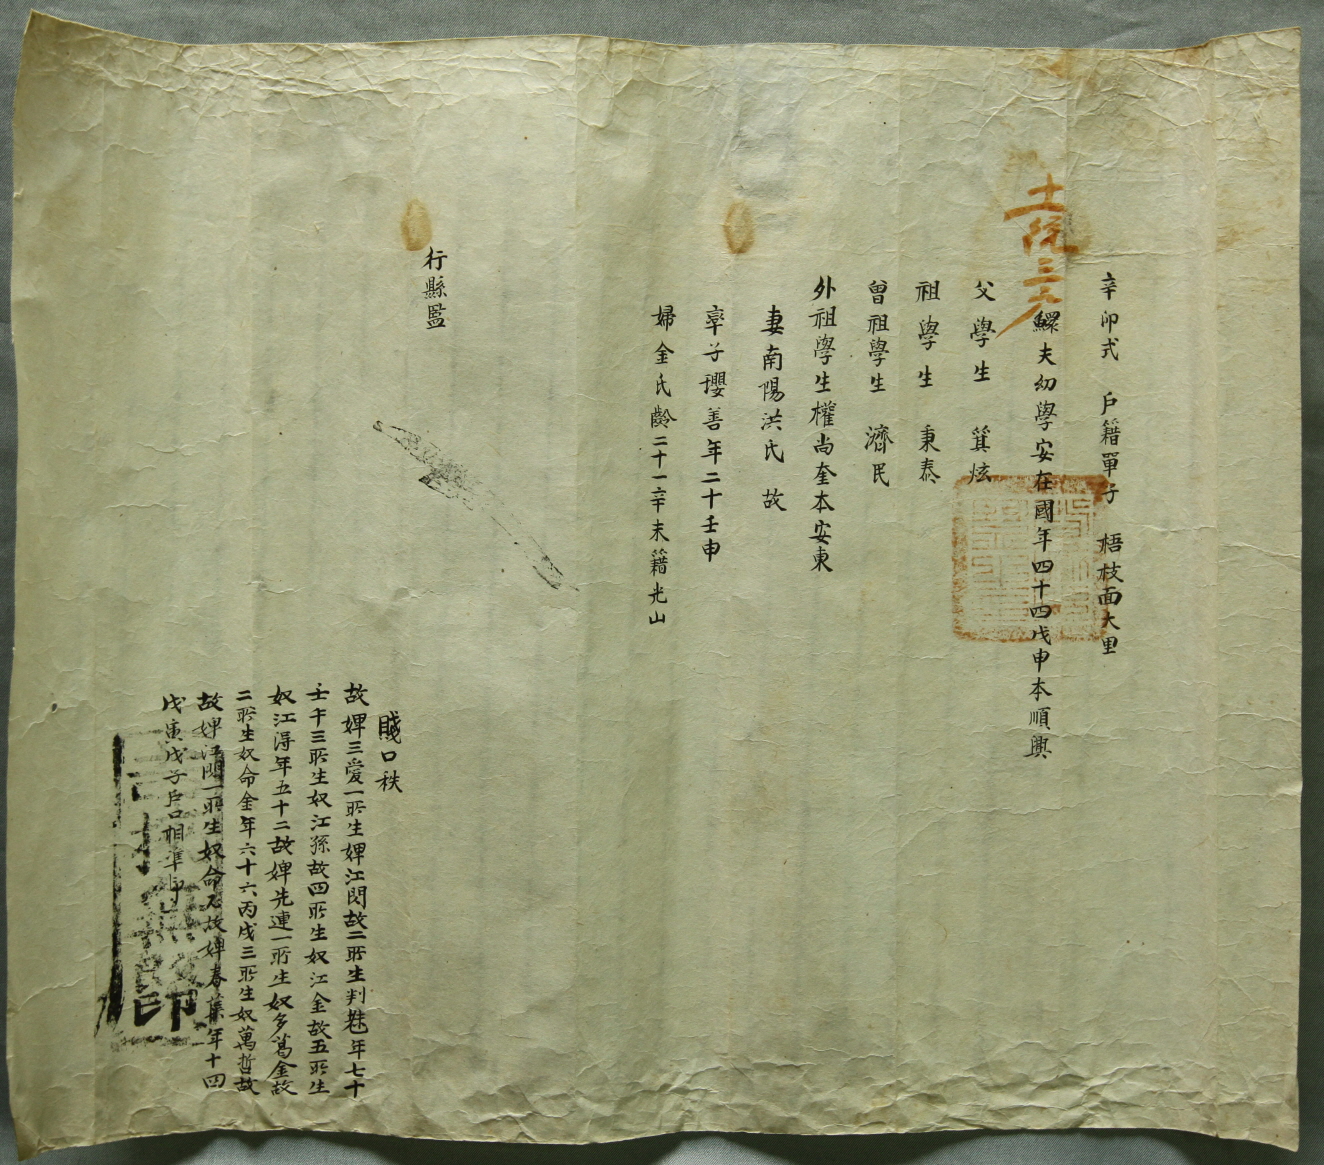 辛卯式 戶籍單子 梧枝面大里
土統三戶
鰥夫幼學安在國年四十四戊申本順興
父學生 箕炫
祖學生 秉泰
曾祖學生 濟民
外祖學生權尚奎本安東
妻南陽洪氏 故
率子瓔善年二十壬申
婦金氏齡二十一辛未籍光山
行縣監
賤口秩
故婢三愛一所生婢江閔故二所生判巷年七十
壬午三所生奴江孫故四所生奴江金故五所生
奴江得年五十二故婢先連一所生奴多葛金故
二所生奴命金年六十六丙戌三所生奴萬哲故
故婢江閔一所生奴命石故婢春葉年十四
戊寅戊子戶口相準印